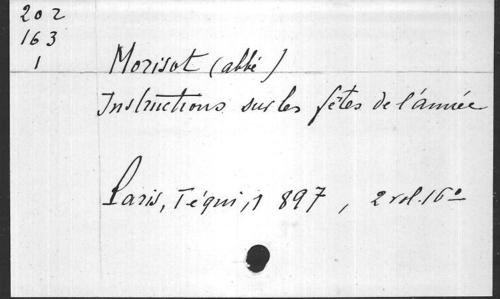 202
163
1
Morisot (abbé)
Instructions sur les fêtes de l'année
Paris, Téqui, 1897, 2 vol. 16º